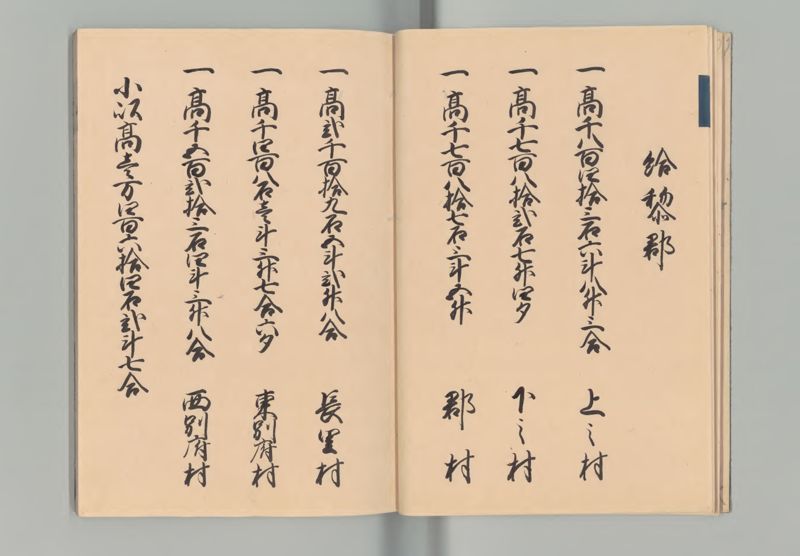 給黎郡
一高千八百四拾三石六斗八升三合 上之村
一高千七百八拾弐石七升四夕 下之村
一高千七百八拾七石三斗五升 郡村
一高弐千百拾九石五斗弐升八合 長里村
一高千四百八石壱斗三升七合六夕 東別府村
一高千五百弐拾三石四斗三升八合 西別府村
小以高壱万四百六拾四石弐斗七合